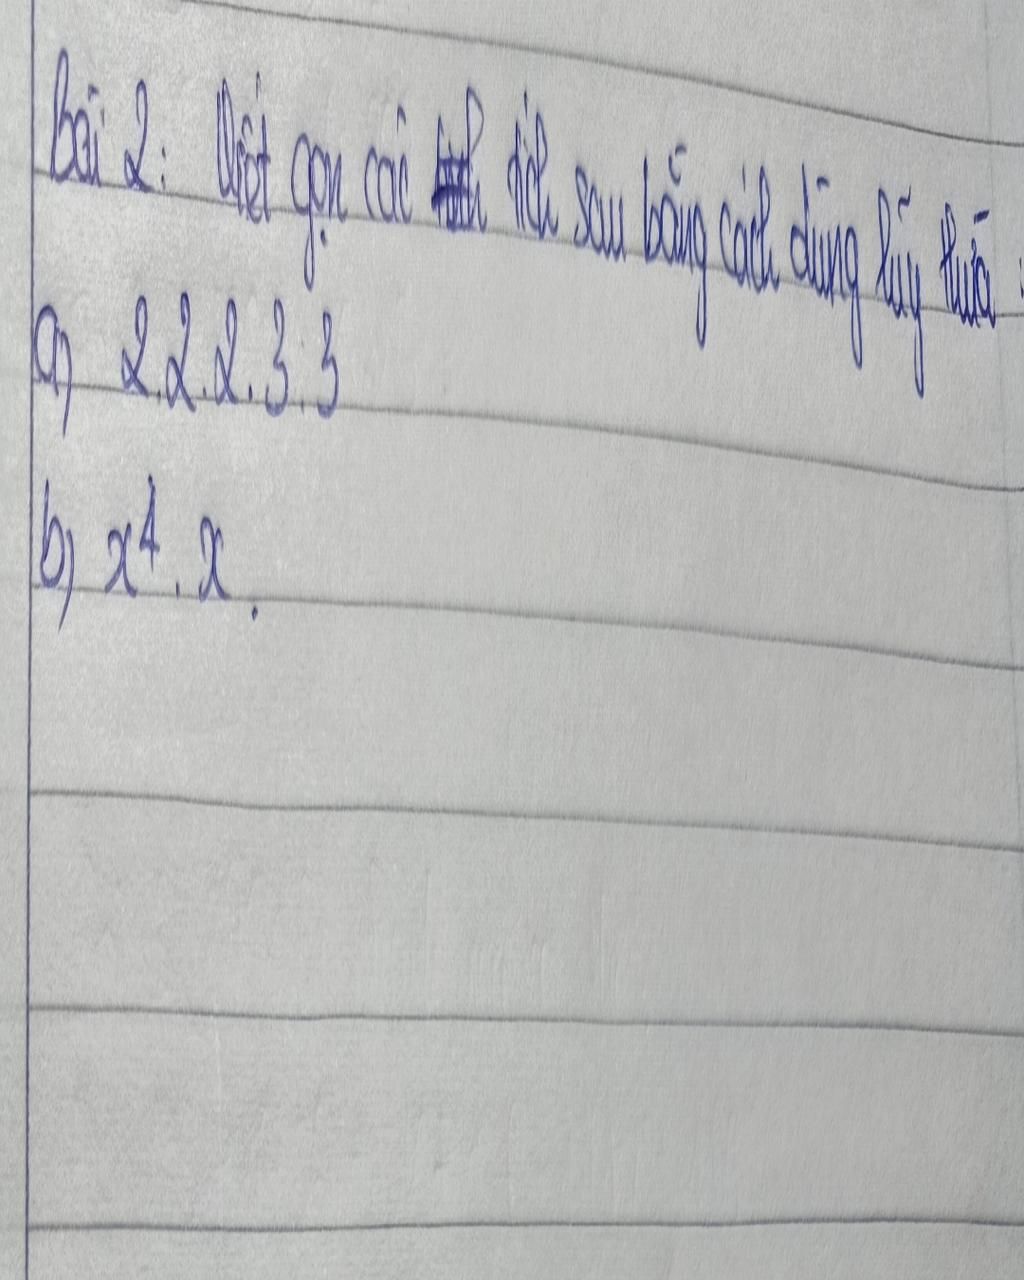 Bài 2: Viết gọn các tích sau bằng cách dùng lũy thừa:
a) 2.2.2.3.3
b) x⁴.x.